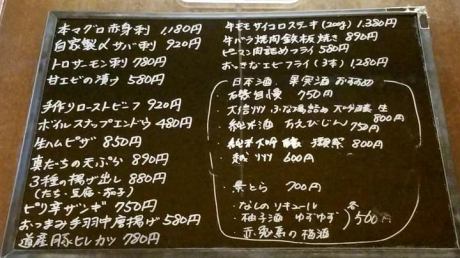 本マグロ赤身刺 1,180円
自家製〆サバ刺 920円
トロサーモン刺 780円
甘エビの漬け 580円
手作りローストビーフ 920円
ボイルスナップエンドウ 480円
生ハムピザ 850円
真だちの天ぷら 890円
3種の揚げ出し 880円
(たち・豆腐・茄子)
ピリ辛ザンギ 750円
おつまみ手羽中唐揚げ 580円
道産豚ヒレカツ 780円
牛モモサイコロステーキ(200g) 1,380円
牛バラ焼肉鉄板焼き 890円
ピーマン肉詰めフライ 580円
おっきなエビフライ(3本) 1280円
日本酒、果実酒 おすすめ
・石鎚 自慢 750円
・大信州 大吟醸 生 800円
・純米酒 ちえびじん 750円
・純米大吟醸 獺祭 800円
・越州 600円
・黒とら 700円
・なしのリキュール
・柚子酒 ゆずゆず
・赤兎馬の梅酒
各500円